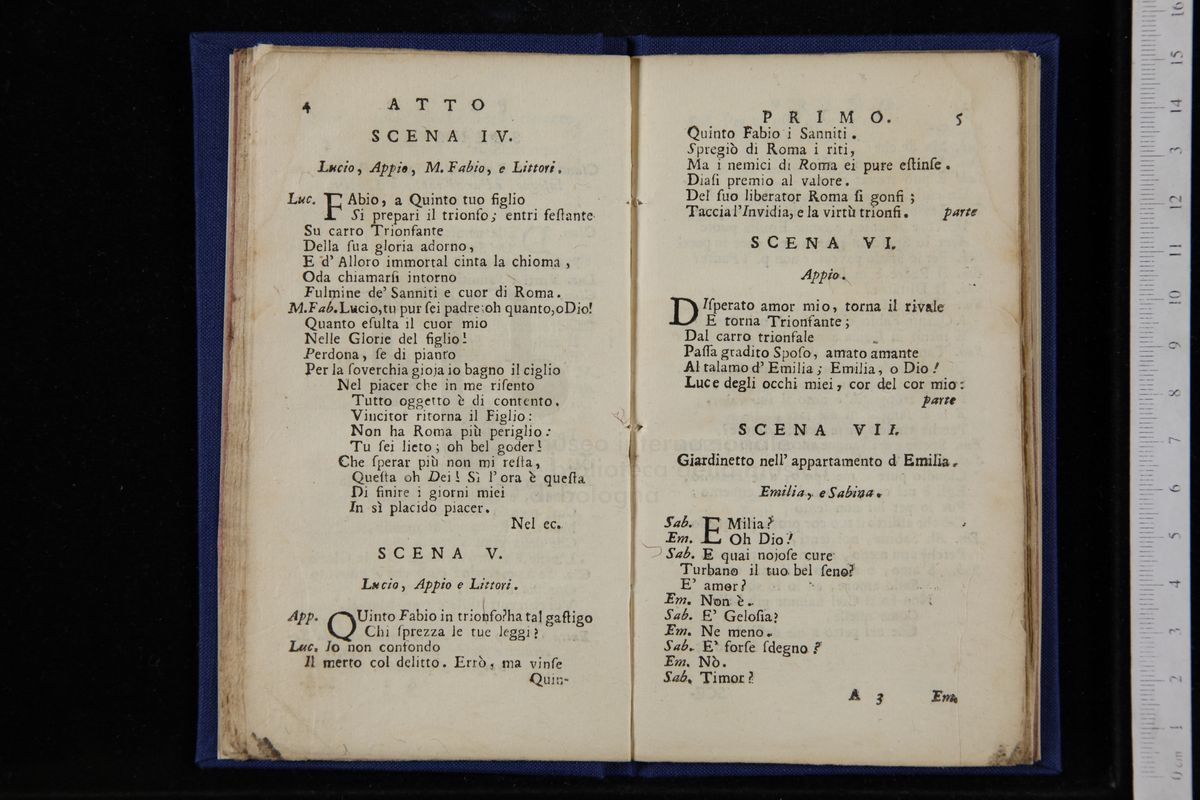 4 ATTO
SCENA IV.
Lucio, Appio, M. Fabio, e Littori.
Luc. FAbio, a Quinto tuo figlio
Si prepari il trionfo; entri feſtante
Su carro Trionfante
Della ſua gloria adorno,
E d' Alloro immortal cinta la chioma,
Oda chiamarſi intorno
Fulmine de' Sanniti e cuor di Roma.
M.Fab. Lucio, tu pur ſei padre: oh quanto, o Dio!
Quanto eſulta il cuor mio
Nelle Glorie del figlio!
Perdona, ſe di pianto
Per la ſoverchia gioja io bagno il ciglio
Nel piacer che in me riſento
Tutto oggetto è di contento.
Vincitor ritorna il Figlio:
Non ha Roma più periglio:
Tu ſei lieto; oh bel goder!
Che ſperar più non mi reſta,
Queſta oh Dei! Sì l'ora è queſta
Di finire i giorni miei
In sì placido piacer.
Nel ec.
SCENA V.
Lucio, Appio e Littori.
App. QUinto Fabio in trionfo? ha tal gaſtigo
Chi ſprezza le tue leggi?
Luc. Io non confondo
Il merto col delitto. Errò, ma vinſe
Quin-
PRIMO. 5
Quinto Fabio i Sanniti.
Spregiò di Roma i riti,
Ma i nemici di Roma ei pure eſtinſe.
Diaſi premio al valore.
Del ſuo liberator Roma ſi gonfi;
Taccia l'Invidia, e la virtù trionfi. parte
SCENA VI.
Appio.
DIſperato amor mio, torna il rivale
E torna Trionfante;
Dal carro trionfale
Paſſa gradito Spoſo, amato amante
Al talamo d' Emilia; Emilia, o Dio!
Luce degli occhi miei, cor del cor mio:
parte
SCENA VII.
Giardinetto nell' appartamento d Emilia.
Emilia, e Sabina.
Sab. EMilia?
Em. Oh Dio!
Sab. E quai nojoſe cure
Turbano il tuo bel ſeno?
E' amor?
Em. Non è.
Sab. E' Geloſia?
Em. Ne meno.
Sab. E' forſe ſdegno?
Em. Nò.
Sab. Timor?
A 3 Em.
museo internazionale
biblioteca
di bologna
0 cm 1 2 3 4 5 6 7 8 9 10 11 12 13 14 15 16